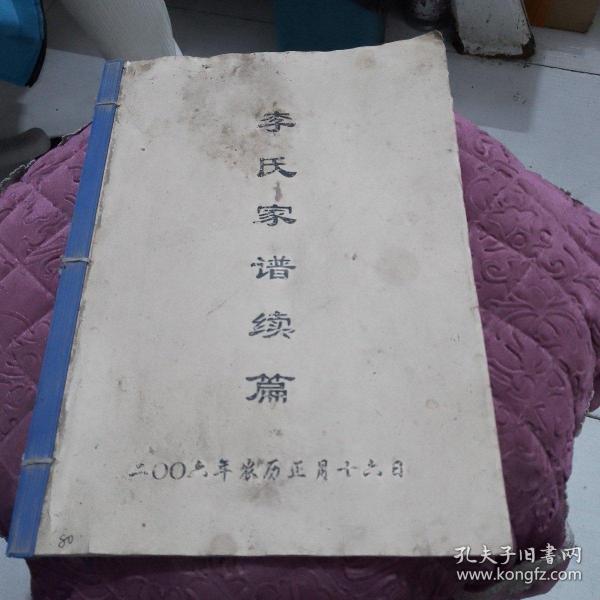 李氏家谱续篇
二〇〇六年农历正月十六日
80
孔夫子旧书网
www.kongfz.com